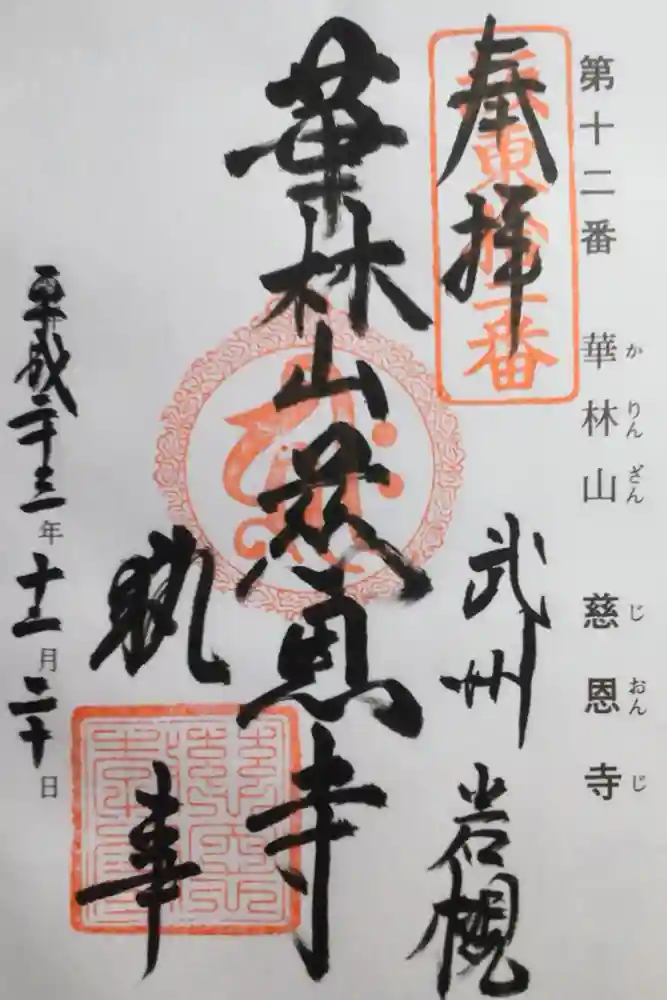 第十二番 華林山 慈恩寺
か りん ざん じ おん じ
奉拝
坂東拾二番
武州 岩槻
華林山慈恩寺
執事
平成二十三年十一月二十日